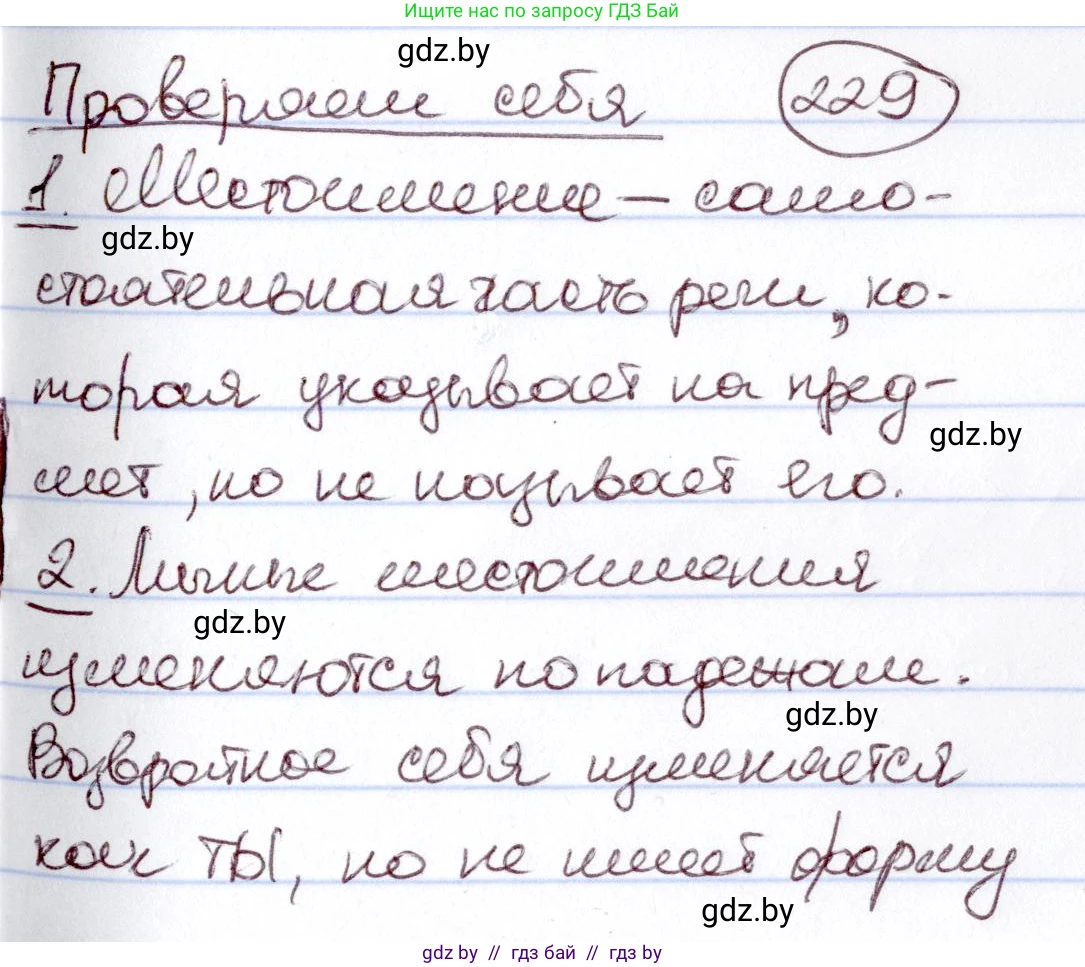 Ищите нас по запросу ГДЗ Бай
gdz.by
Проверяем себя 229
1. Местоимение – само-
gdz.by
стоятельная часть речи, ко-
торая указывает на пред-
gdz.by
мет, но не называет его.
2. Личные местоимения
gdz.by
изменяются по падежам.
gdz.by
Возвратное себя изменяется
как ТЫ, но не имеет форму
gdz.by
gdz.by // гдз бай // gdz.by